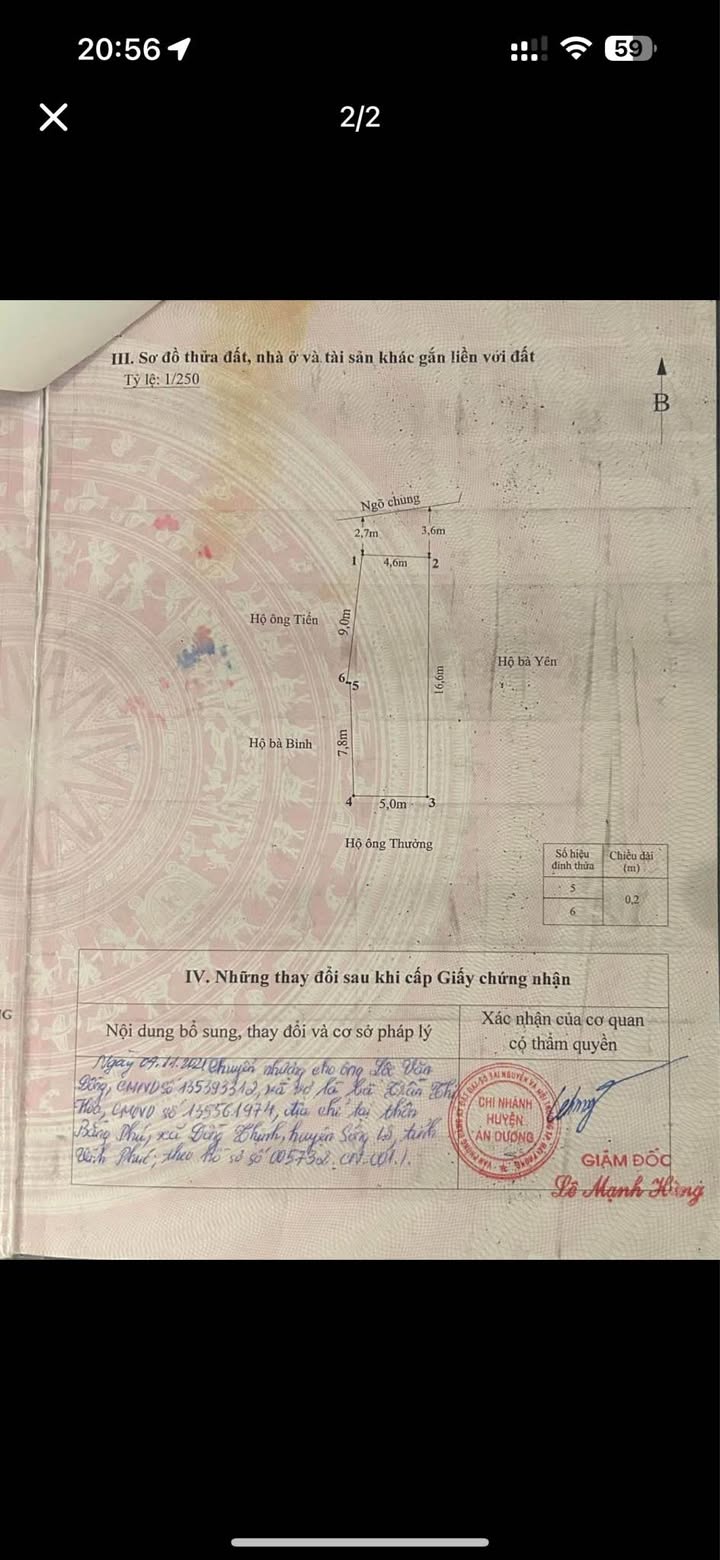 20:56
59
2/2
III. Sơ đồ thửa đất, nhà ở và tài sản khác gắn liền với đất
Tỷ lệ: 1/250
B
Ngõ chung
2,7m
3,6m
1
4,6m
2
Hộ ông Tiến
9,0m
Hộ bà Yên
16,6m
6
5
Hộ bà Bình
7,8m
4
5,0m
3
Hộ ông Thường
Số hiệu đỉnh thửa
Chiều dài (m)
5
6
0,2
IV. Những thay đổi sau khi cấp Giấy chứng nhận
Nội dung bổ sung, thay đổi và cơ sở pháp lý
Xác nhận của cơ quan
có thẩm quyền
Ngày 09.11.2021 Chuyển nhượng cho ông Văn
CMND số 135393312, và vợ là bà Trần Thị
Hoà, CMND số 135561974, địa chỉ tại thôn
Bằng Phú, xã Đồng Thịnh, huyện Sông Lô, tỉnh
Vĩnh Phúc; theo hồ sơ số 005732.CN.001./.
CHI NHÁNH
HUYỆN
AN DƯƠNG
GIÁM ĐỐC
Lê Mạnh Hùng